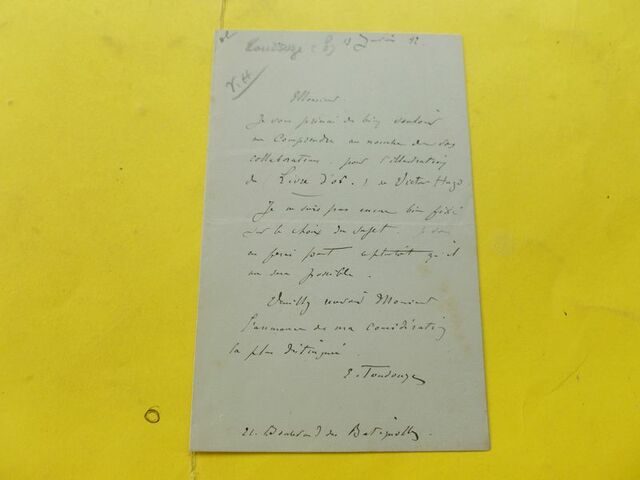 Toudouze
V.H
Monsieur
Je vous prierai de bien vouloir
me comprendre au nombre de vos
collaborateurs pour l'illustration
du Livre d'or de Victor Hugo
Je ne suis pas encore bien fixé
sur le choix du sujet. Je vous
en ferai part aplutôt qu'il
me sera possible.
Veuillez recevoir Monsieur
l'assurance de ma considération
la plus distinguée
E. Toudouze
21. Boulevard des Batignolles.